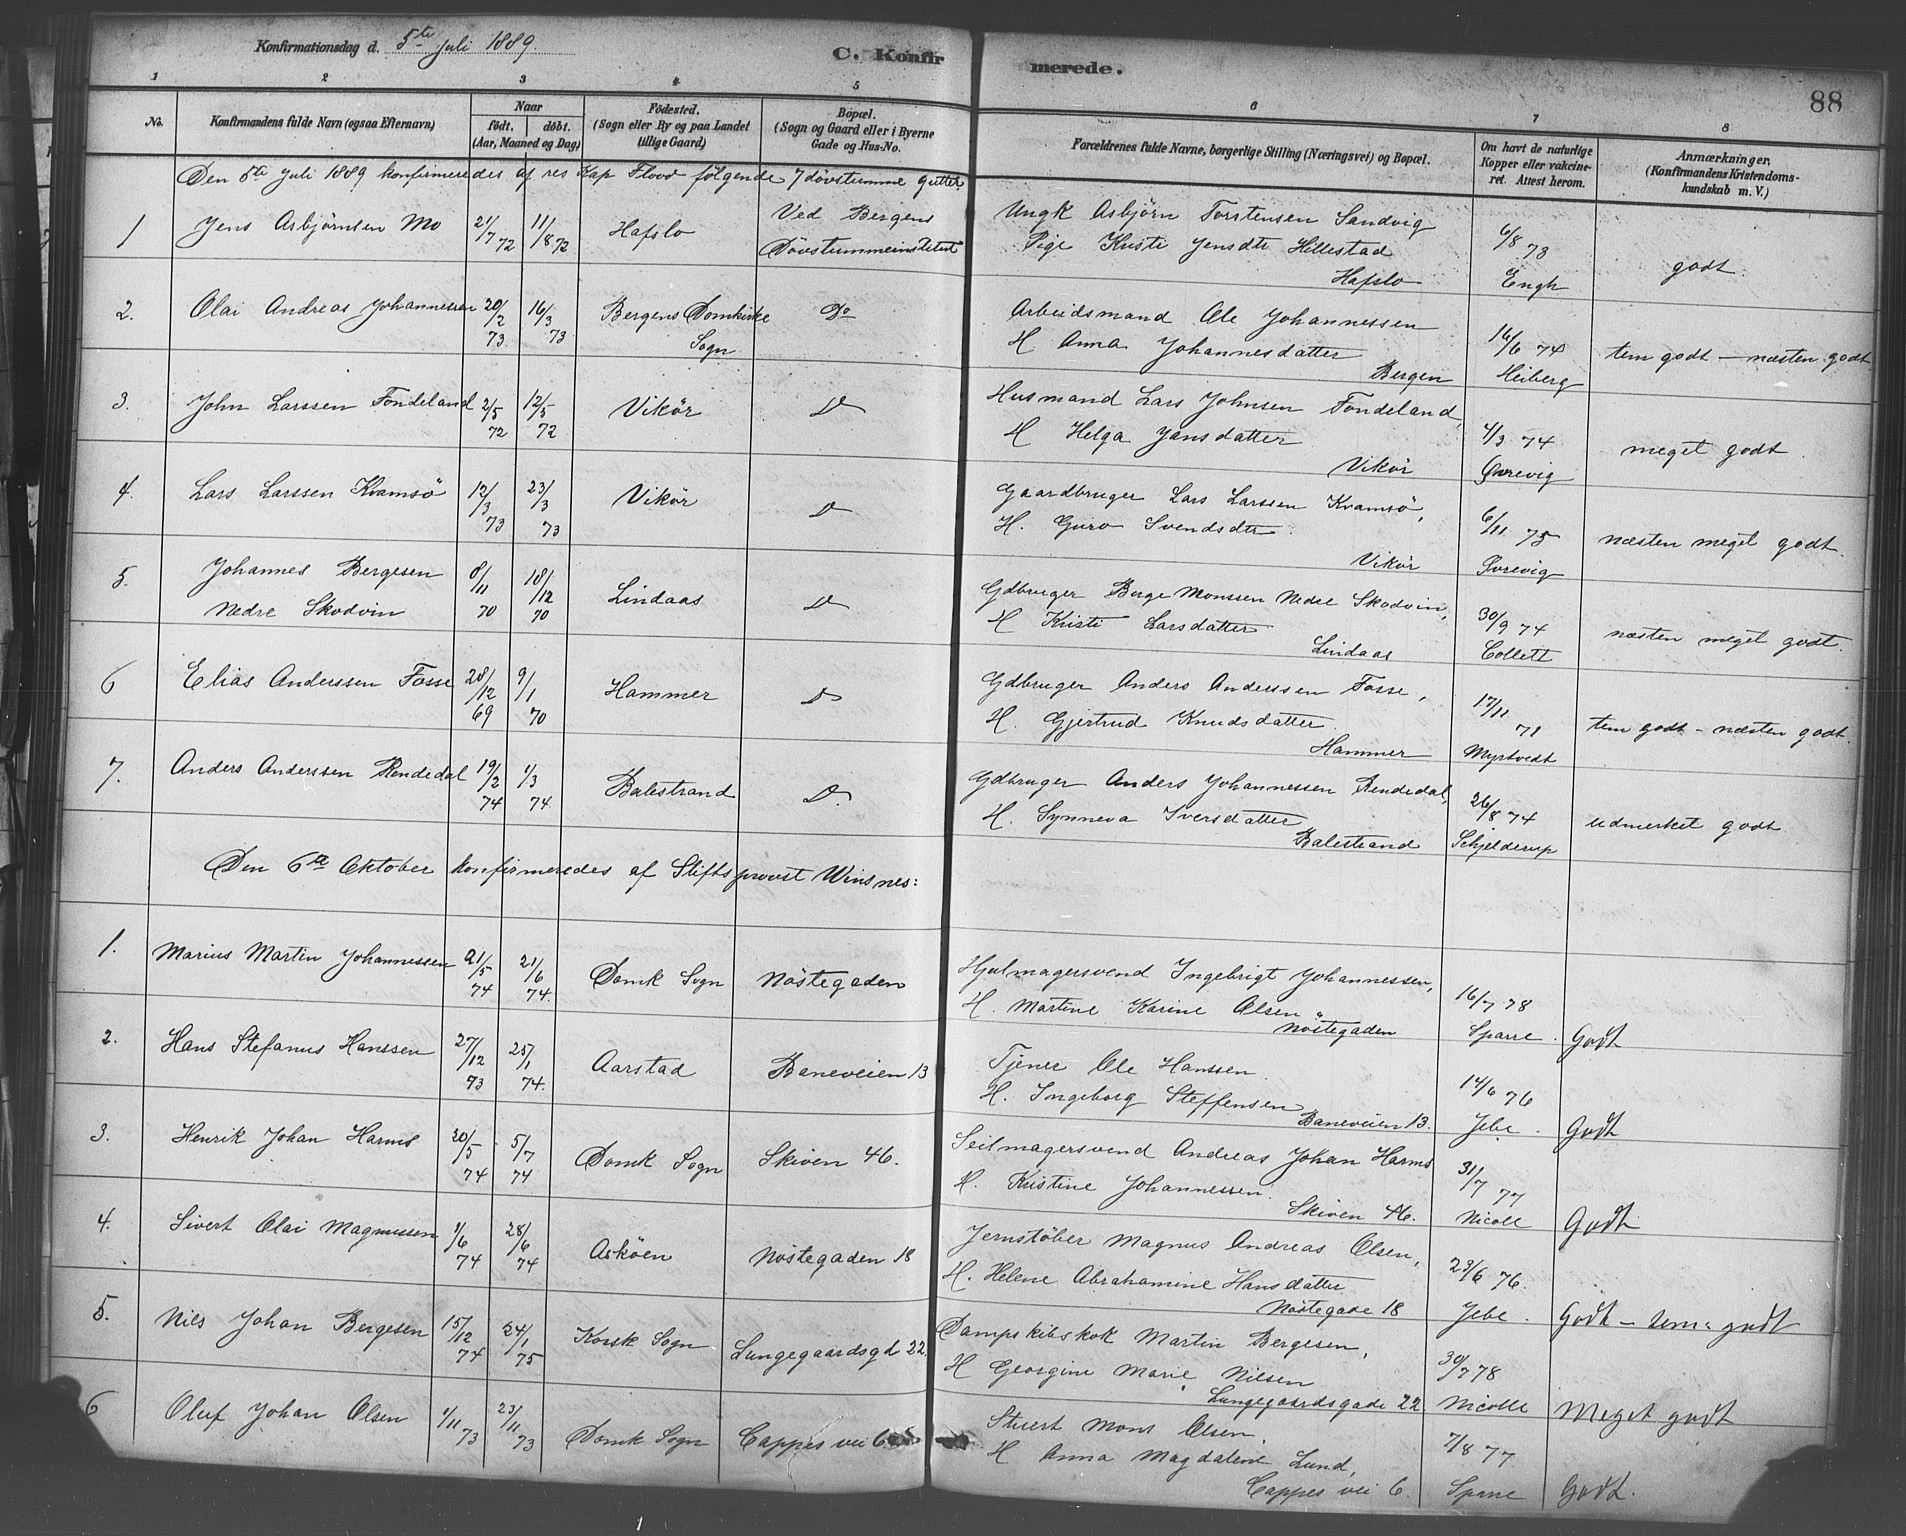 Konfirmationsdag d. 5te Juli 1889.
C. Konfirmerede.
88
1 2 3 4 5 6 7 8
No.
Konfirmandens fulde Navn (ogsaa Efternavn)
Naar
født. døbt.
(Aar, Maaned og Dag)
Fødested.
(Sogn eller By og paa Landet
tillige Gaard)
Bopæl.
(Sogn og Gaard eller i Byerne
Gade og Hus-No.
Forældrenes fulde Navne, borgerlige Stilling (Næringsvei) og Bopæl.
Om havt de naturlige
Kopper eller vakcine-
ret. Attest herom.
Anmærkninger,
(Konfirmandens Kristendoms-
kundskab m. V.)
Den 5te Juli 1889 konfirmeredes af res Kap Flood følgende 7 døvstumme gutter
1 Jens Asbjørnsen Mo 21/7 72 11/8 72 Hafslo Ved Bergens Døvstummeinstitut
Ungk Asbjørn Torstensen Sandvig
Pige Kristi Jensdtr Hillestad
Hafslo
6/8 73 Engh godt.
2. Olai Andreas Johannessen 20/2 73 16/3 73 Bergens Domkirke Sogn Do
Arbeidsmand Ole Johannessen
H Anna Johannesdatter
Bergen
16/6 74 Heiberg tem godt – næsten godt
3. John Larssen Fondeland 2/5 72 12/5 72 Vikør D
Husmand Lars Johnsen Fondeland,
H Helga Jansdatter
Vikør
4/3 74 meget godt.
4. Lars Larssen Kvamsö 12/3 73 23/3 73 Vikør D
Gaardbruger Lars Larssen Kvamsö,
H. Guro Svendsdtr.
Vikør
6/11 75 næsten meget godt.
5. Johannes Bergesen
Nedre Skodvin 8/11 70 18/12 70 Lindaas D
Gdbruger Berge Monssen Nedre Skodvin,
H Kristi Larsdatter
Lindaas
30/9 74 Collett næsten meget godt.
6 Elias Anderssen Fosse 28/12 69 9/1 70 Hammer D
Gdbruger Anders Anderssen Fosse,
H. Gjertrud Knudsdatter
Hammer
17/11 71 Myrtvedt tem godt – næsten godt.
7. Anders Anderssen Rendedal 19/2 74 1/3 74 Balestrand D.
Gdbruger Anders Johannessen Rendedal,
H. Synneva Iversdatter
Balestrand
26/8 74 Schjelderup udmerket godt
Den 6te Oktober konfirmeredes af Stiftsprovst Winsnes:
1. Marius Martin Johannessen 21/5 74 21/6 74. Domk Sogn Nöstegaden
Hjulmagersvend Ingebrigt Johannessen,
H. Martine Karine Olsen
Nöstegaden
16/7 78 Sparre. Godt
2. Hans Stefanus Hanssen 27/12 73 25/1 74. Aarstad Baneveien 13
Tjener Ole Hanssen.
H. Ingeborg Steffensen
Baneveien 13.
14/6 76 Jebe. Godt
3. Henrik Johan Harms 20/5 74 5/7 74 Domk Sogn Skiven 46.
Seilmagersvend Andreas Johan Harms
H. Kristine Johannessen.
Skiven 46.
31/7 77 Nicoll Godt
4. Sivert Olai Magnussen 1/6 74 28/6 74 Askøen Nöstegaden 18
Jernstøber Magnus Andreas Olsen,
H. Helene Abrahamine Hansdatter
Nöstegade 18
23/6 76. Jebe. Godt – tem. godt
5. Nils Johan Bergesen 15/12 74 24/1 75 Korsk Sogn Lungegaardsgd 22.
Dampskibskok Martin Bergesen,
H Georgine Marie Nilsen
Lungegaardsgade 22
30/7 78 Nicolle Meget godt
6 Oluf Johan Olsen 1/11 73 23/11 73 Domk Sogn Cappes vei 6
Stuert Mons Olsen,
H Anna Magdalene Lund,
Cappes vei 6.
7/8 77 Sparre Godt.
1